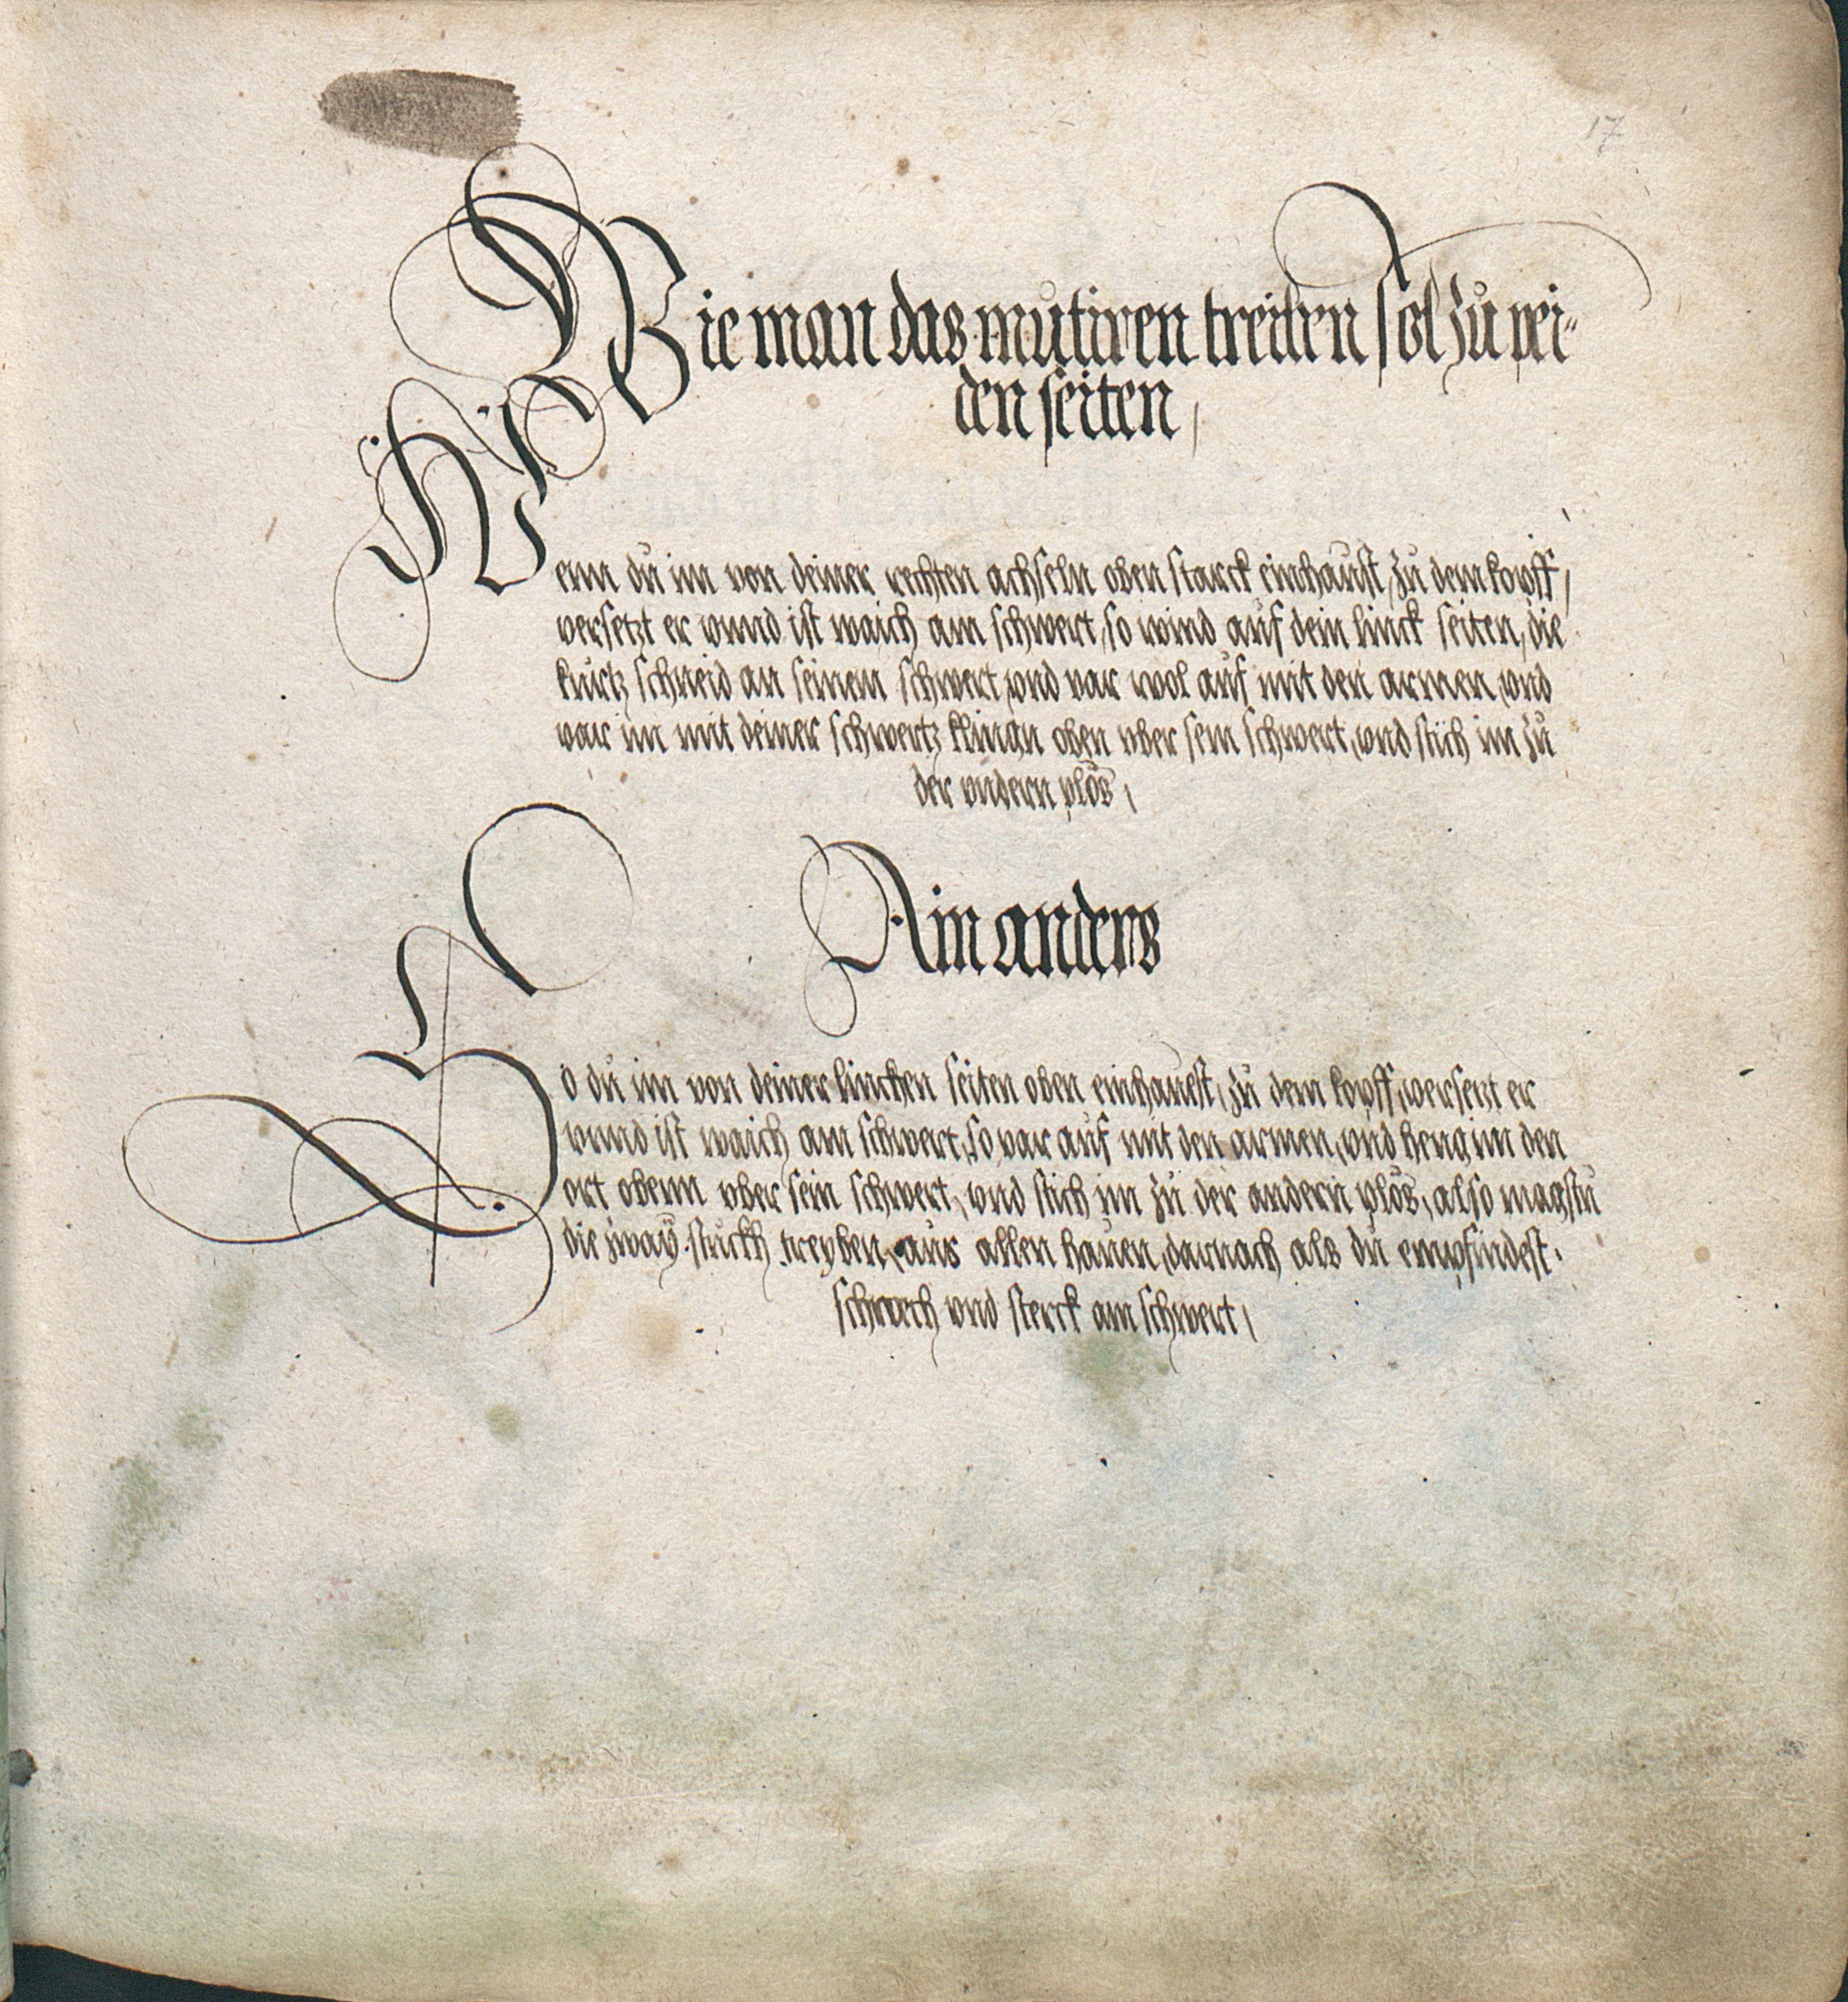 17
Wie man das mutiren treiben sol zu pei-
den seiten,
Wenn du im von deiner rechten achseln oben starck einhaust, zu dem kopff,
versetzt er vnnd ist waich am schwert, so wind auf dein linck seiten, die
kurtz schneid an seinem schwert, vnd var wol auf mit den armen, vnd
var im mit deiner schwertz klingn oben vber sem schwert, vnd stich im zu
der vndern plös,
Ain anders
So du im von deiner lincken seiten oben einhauest, zu dem kopff, versetzt er
vnnd ist waich am schwert, so var auf mit den armen, vnd heng im den
ort obenn vber sein schwert, vnd stich im zu der andern plös, also magstu
die zway stuckh treyben, aus allen hauen, darnach als du empfindest.
schwech vnd sterck am schwert,